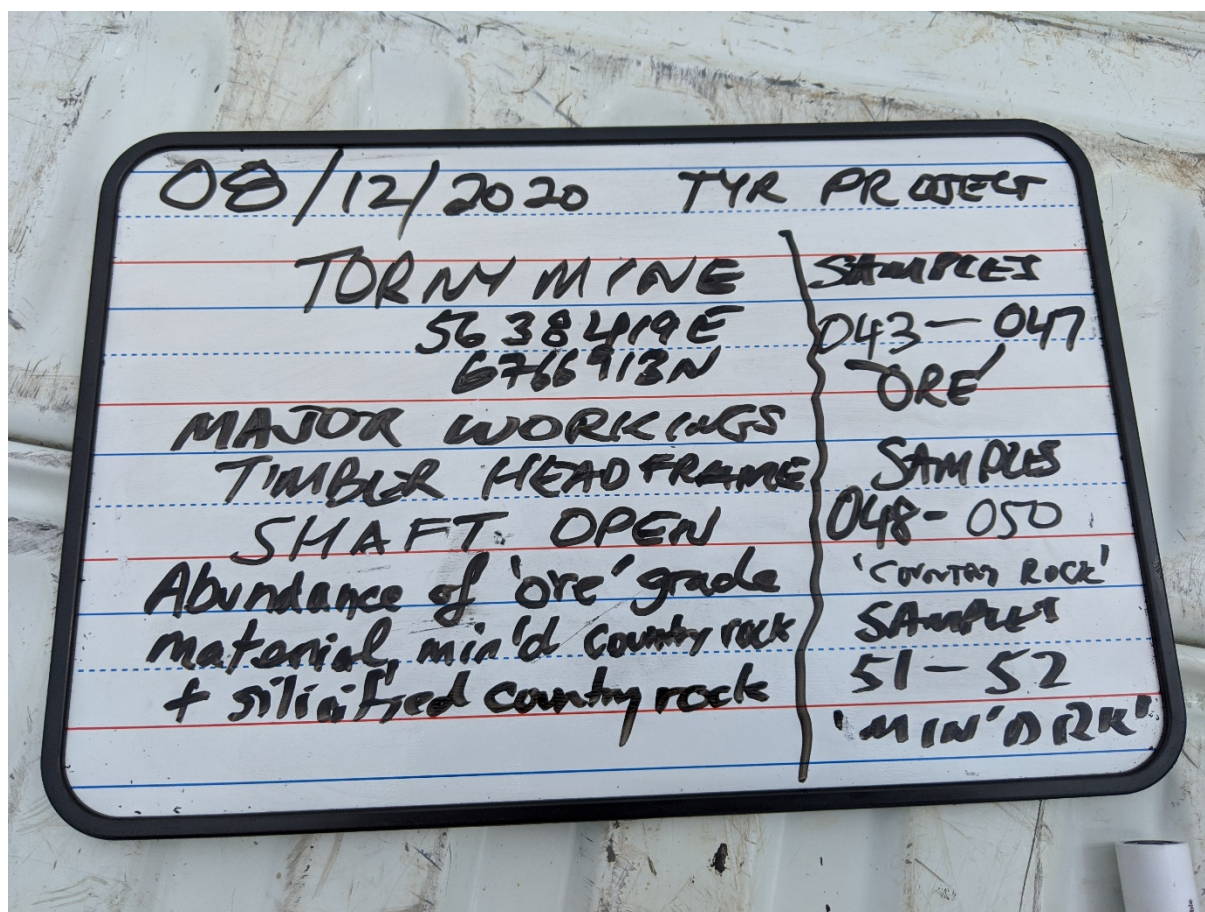 08/12/2020 TYR PROJECT
TORNY MINE
5638419E
6766913N
MAJOR WORKINGS
TIMBER HEADFRAME
SHAFT. OPEN
Abundance of 'ore' grade
material, min'd country rock
+ silicified country rock
SAMPLES
043 - 047
'ORE'
SAMPLES
048 - 050
'COUNTRY ROCK'
SAMPLES
51 - 52
'MIN'D RK'